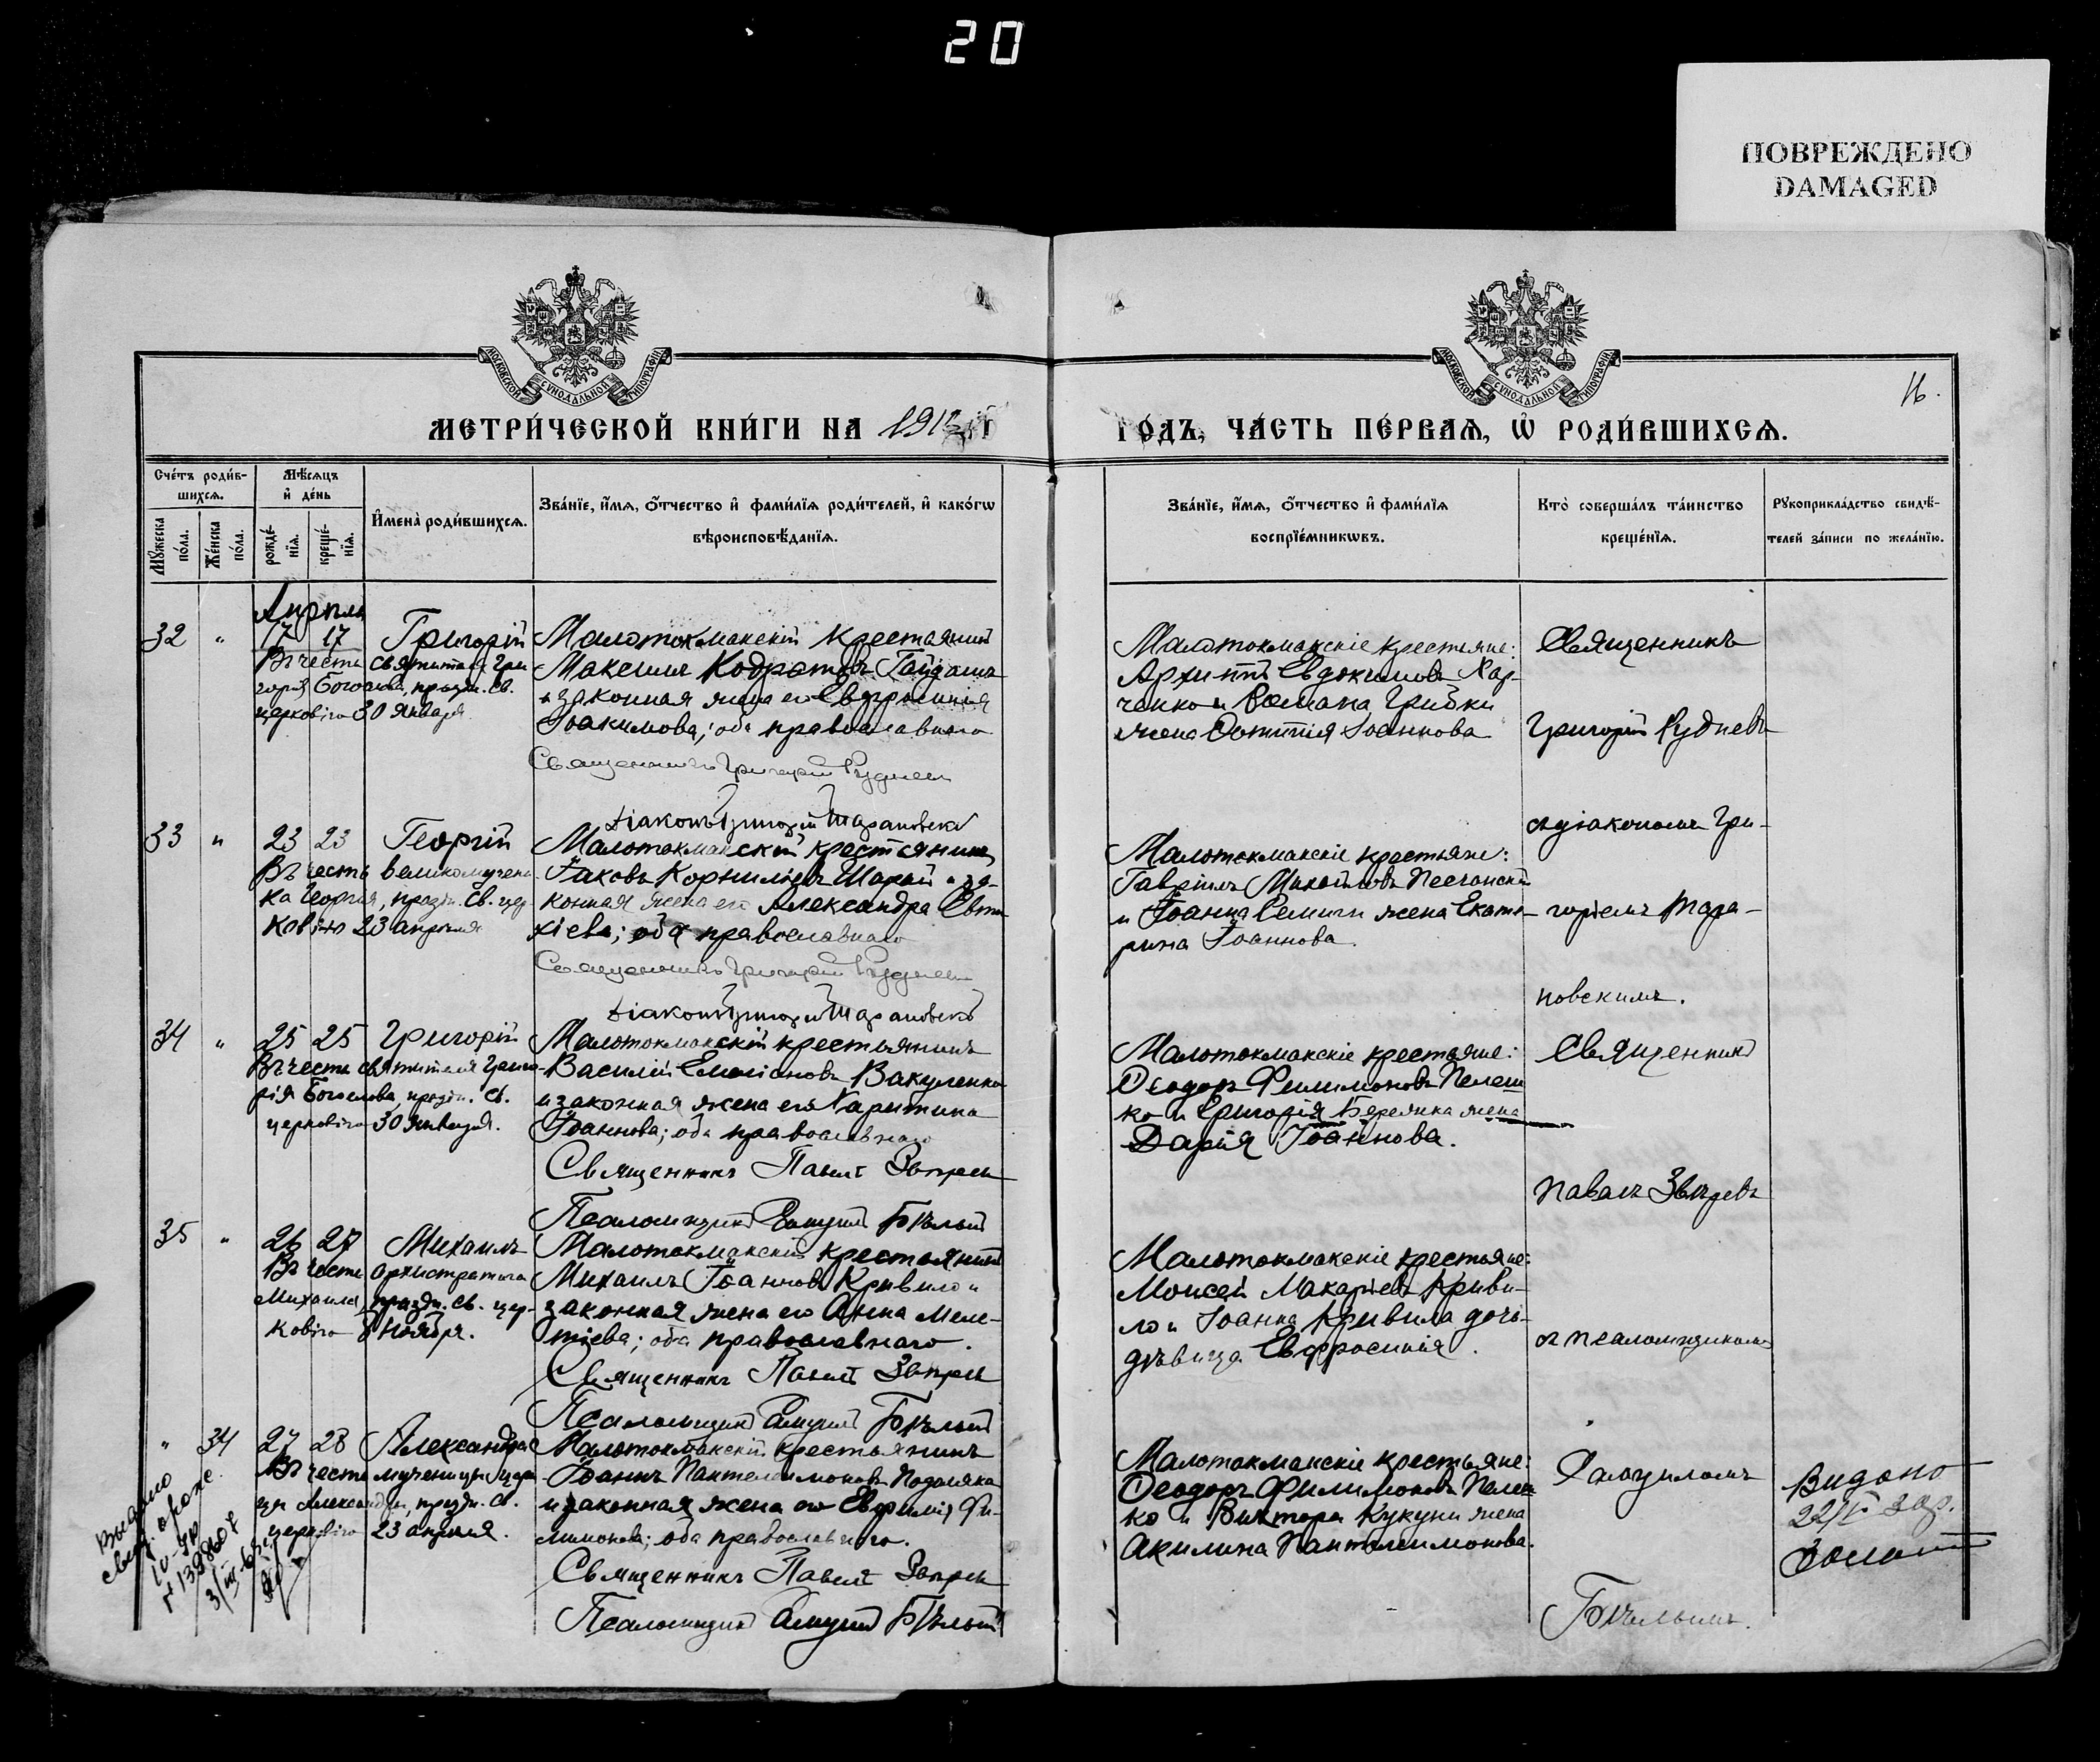 20
ПОВРЕЖДЕНО
DAMAGED
МОСКОВСКОЙ СУНОДАЛЬНОЙ ТИПОГРАФІИ
МОСКОВСКОЙ СУНОДАЛЬНОЙ ТИПОГРАФІИ
16.
МЕТРИ́ЧЕСКОЙ КНИ́ГИ НА
ГОДЪ, ЧА́СТЬ ПЕ́РВАѦ, Ѡ РОДИ́ВШИХСѦ.
Сче́тъ роди́в-
шихсѧ.
Мꙋ́жеска по́ла.
Же́нска по́ла.
Мѣ́сѧцъ
и҆ де́нь
рожде́-
нїѧ.
креще́-
нїѧ.
И҆мена̀ роди́вшихсѧ.
Зва́нїе, и҆́мѧ, ѻ҆́тчество и҆ фами́лїѧ роди́телей, и҆ како́гѡ
вѣроисповѣ́данїѧ.
Зва́нїе, и҆́мѧ, ѻ҆́тчество и҆ фами́лїѧ
воспрїе́мникѡвъ.
Кто̀ соверша́лъ та́инство
креще́нїѧ.
Рꙋкоприкла́дство свидѣ́-
телей за́писи по жела́нїю.
Апрѣль
32 " 17 17 Григорій
Въ честь святителя Гри
горія Богослова, праздн. св.
церковію 30 января
Малотокмакскій крестьянинъ
Максимъ Кодратовъ Гайдашъ
и законная жена его Евфросинія
Іоакимова; оба православнаго
Священникъ Григорій Руднев
Діаконъ Григорій Тарановскій
Малотокмакскіе крестьяне:
Архипъ Евдокимовъ Хар-
ченко и Романа Грибки
жена Фотинія Іоаннова
Священникъ
Григорій Рудневъ
33 " 23 23 Георгій
Въ честь великомучени
ка Георгія, праздн. св. цер
ковію 23 апрѣля
Малотокмакскій крестьянинъ
Іаковъ Корниліевъ Шарай и за-
конная жена его Александра Евти
хіева; оба православнаго
Священникъ Григорій Руднев
Діаконъ Григорій Тарановскій
Малотокмакскіе крестьяне:
Гавріилъ Михайловъ Песчанскій
и Іоанна Семиги жена Екате-
рина Іоаннова.
съ діакономъ Гри-
горіемъ Тара-
новскимъ.
34 " 25 25 Григорій
Въ честь святителя Григо-
рія Богослова, праздн. св.
церковію 30 января.
Малотокмакскій крестьянинъ
Василій Емеліановъ Вакуленко
и законная жена его Харитина
Іоаннова; оба православнаго
Священникъ Павелъ Звѣрев
Псаломщикъ Самуилъ Бѣлый
Малотокмакскіе крестьяне:
Ѳеодоръ Филимоновъ Пелеш
ко и Григорія Бережка жена
Дарія Іоаннова.
Священникъ
Павелъ Звѣревъ
35 " 26 27 Михаилъ
Въ честь Архистратига
Михаила, праздн. св. цер-
ковію 8 ноября.
Малотокмакскій крестьянинъ
Михаилъ Іоанновъ Кривило и
законная жена его Анна Меле-
тіева; оба православнаго.
Священникъ Павелъ Звѣрев
Псаломщикъ Самуилъ Бѣлый
Малотокмакскіе крестьяне:
Моисей Макаріевъ Криви-
ло и Іоанна Кривила дочь-
дѣвица Евфросинія.
съ псаломщикомъ
" 34 27 28 Александра
Въ честь мученицы цари
цы Александры, праздн. св.
церковію 23 апрѣля.
Малотокмакскій крестьянинъ
Іоаннъ Пантелеимоновъ Подоляка
и законная жена его Евфимія Фи-
лимонова; оба православнаго.
Священникъ Павелъ Звѣрев
Псаломщикъ Самуилъ Бѣлый
Малотокмакскіе крестьяне:
Ѳеодоръ Филимоновъ Пелеш
ко и Виктора Кукуни жена
Акилина Пантелеимонова.
Самуиломъ
Бѣлымъ.
Видано
Выдано